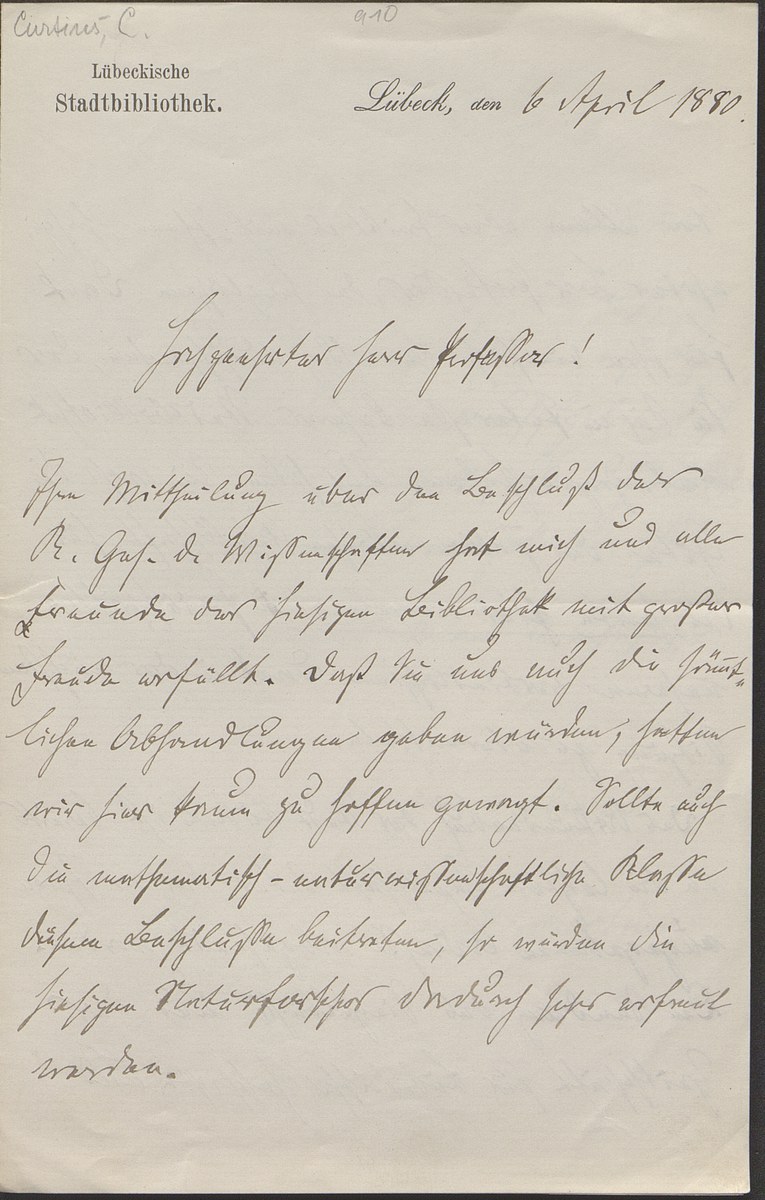 Curtius, C.
910
Lübeckische
Stadtbibliothek.
Lübeck, den 6 April 1880.
Hochgeehrter Herr Professor!
Ihre Mittheilung über den Beschluß der
K. Ges. d. Wissenschaften hat mich und alle
Freunde der hiesigen Bibliothek mit großer
Freude erfüllt. Daß Sie uns auch die sämt-
lichen Abhandlungen geben würden, hatten
wir hier kaum zu hoffen gewagt. Sollte auch
die mathematisch-naturwissenschaftliche Klasse
diesem Beschlusse beitreten, so würden die
hiesigen Naturforscher dadurch sehr erfreut
werden.